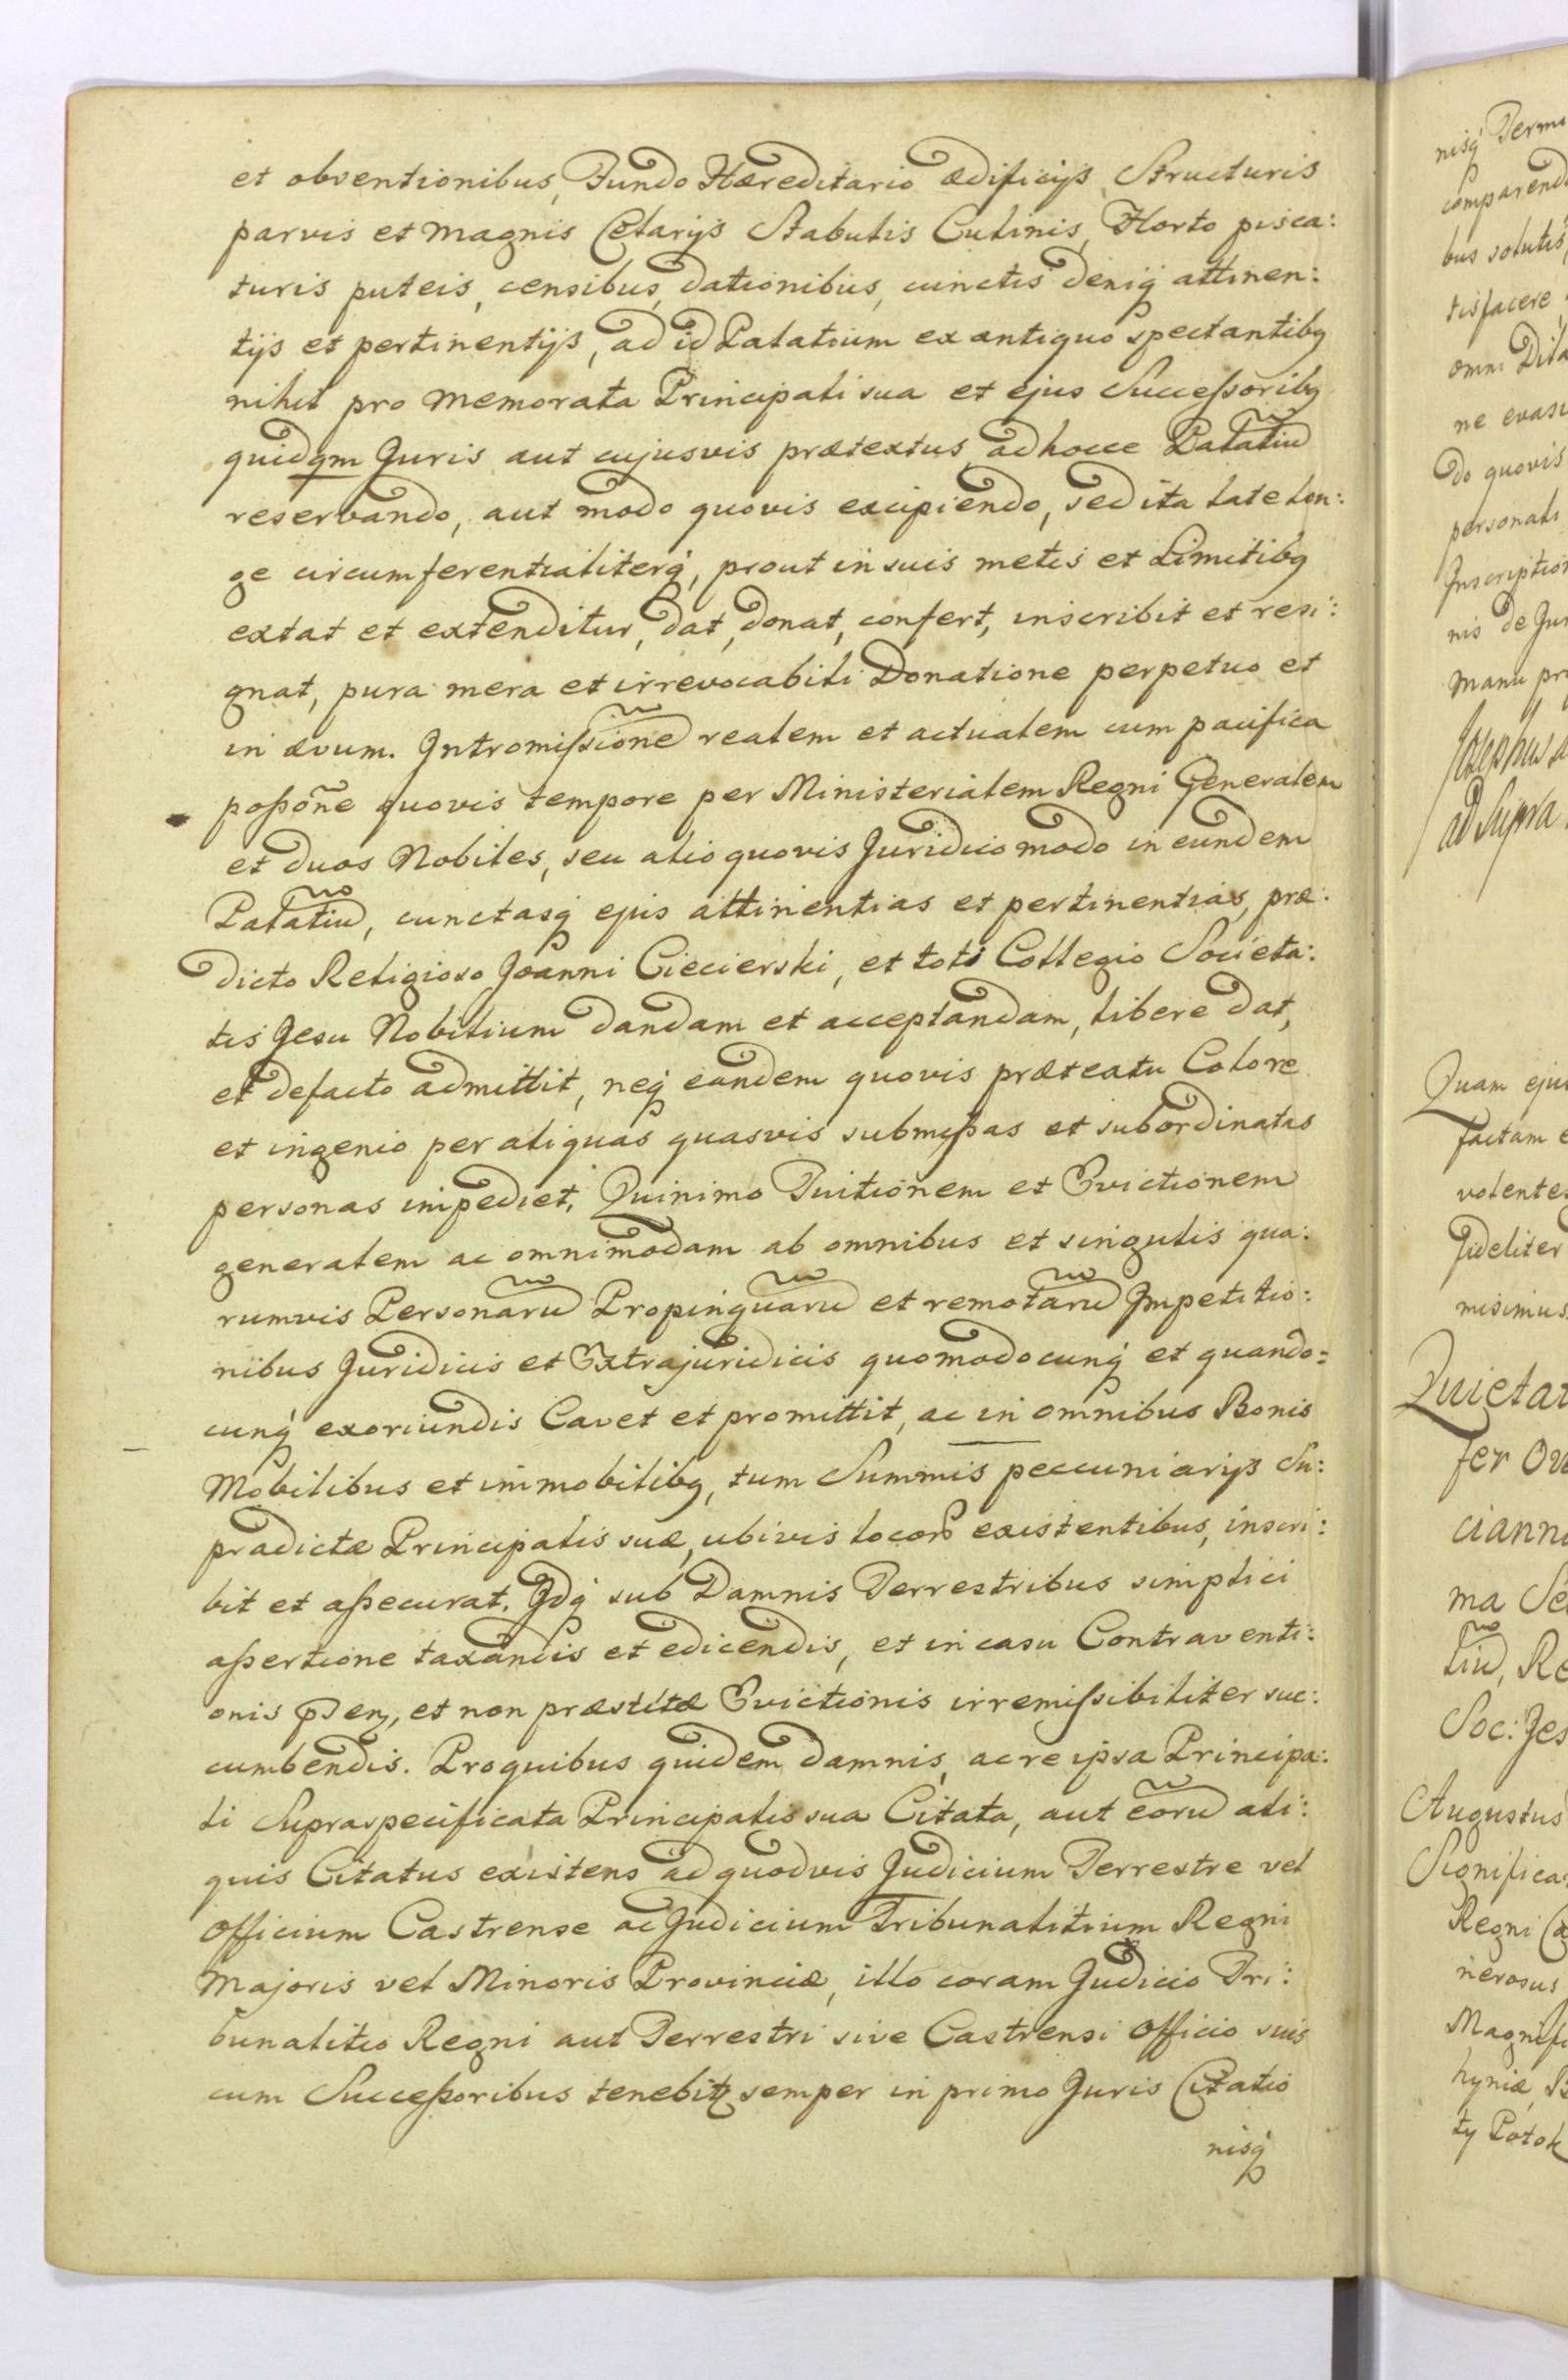 et obventionibus, Fundo Hæreditario ædificijs, Structuris
parvis et magnis Celarijs Stabulis Culinis, Horto pisca:
turis puteis, censibus, dationibus, cunctis deniq́ attinen:
tijs et pertinentijs, ad id Palatium ex antiquo spectantibꝰ
nihil pro memorata Principali sua et ejus Successoribꝰ
quidqm Juris aut cujusvis prætextus, ad hocce Palatiũ
reservando, aut modo quovis excipiendo, sed ita late lon:
ge circumferentialiterq́, prout in suis metis et Limitibꝰ
extat et extenditur, dat, donat, confert, inscribit et resi:
gnat, pura mera et irrevocabili Donatione perpetuo et
in ævum. Intromissionẽ realem et actualem cum pacifica
possõne quovis tempore per Ministerialem Regni Generalem
et duos Nobiles, seu alio quovis Juridico modo in eundem
Palatiũ, cunctasq́ ejus attinentias et pertinentias, præ:
dicto Religioso Joanni Ciecierski, et toti Collegio Societa:
tis Jesu Nobilium dandam et acceptandam, libere dat,
et defacto admittit, neq́ eandem quovis prætextu Colore
et ingenio per aliquas quasvis submissas et subordinatas
personas impediet. Quinimo Tuitionem et Evictionem
generalem ac omnimodam ab omnibus et singulis qua:
rumvis Personarũ Propinquarũ et remotarũ Impetitio:
nibus Juridicis et Extrajuridicis quomodocunq́ et quando=
cunq́ exoriundis Cavet et promittit, ac in omnibus Bonis
Mobilibus et immobilibꝰ, tum Summis peccuniarijs Su:
pradictæ Principalis suæ, ubivis locorꝫ existentibus, inscri:
bit et assecurat. Idq́ sub Damnis Terrestribus simplici
assertione taxandis et edicendis, et in casu Contraventi:
onis et non præstitæ Evictionis irremissibiliter suc:
cumbendis. Pro quibus quidem damnis, ac re ipsa Principa:
li Supraspecificata Principalis sua Citata, aut eorũ ali:
quis Citatus existens ad quodvis Judicium Terrestre vel
Officium Castrense ac Judicium Tribunalitium Regni
Majoris vel Minoris Provinciæ, illo coram Judicio Tri:
bunalitio Regni aut Terrestri sive Castrensi Officio suis
cum Successoribus tenebitꝛ semper in primo Juris Citatio
nisq́
nisq́ Termi
comparend
bus solutis,
tisfacere
omni Dila
ne evasi
do quovis
personali
Inscription
nis de Jur
manu pro
Josephus
ad Supra
Quam ejus
factam e
volentes
fideliter
misimus
Quietat
fer Ow
cianno
ma Se
tiũ, Re
Soc: Jes
Augustus
Significa
Regni
nerosus
Magnifi
hyniæ,
ty Potok